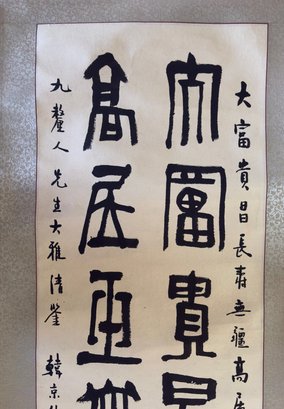 大富貴昌長壽無疆高居
大富貴昌
高居
九釐人先生大雅清鉴 韓京